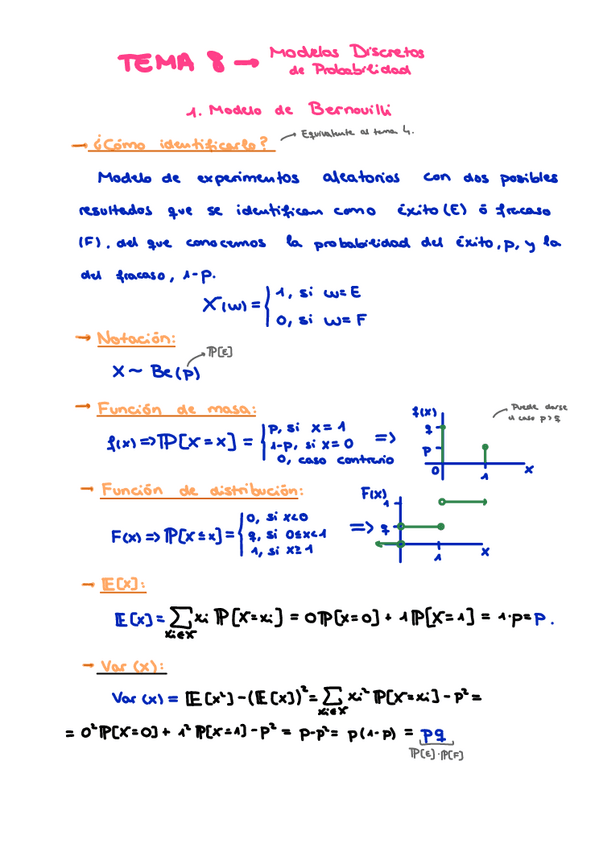 TEMA 8 → Modelos Discretos
de Probabilidad
1. Modelo de Bernouilli
→ ¿Cómo identificarlo? → Equivalente al tema 4.
Modelo de experimentos aleatorios con dos posibles
resultados que se identifican como éxito (E) ó fracaso
(F), del que conocemos la probabilidad del éxito, p, y la
del fracaso, 1-p.
X(w) = { 1, si w = E
0, si w = F
→ Notación:
X ~ Be(p) → ℙ[E]
→ Función de masa:
f(x) => ℙ[X = x] = { p, si x = 1
1-p, si x = 0
0, caso contrario
=>
f(x)
q
p
0 1 x
→ Puede darse
el caso p > q
→ Función de distribución:
F(x) => ℙ[X ≤ x] = { 0, si x < 0
q, si 0 ≤ x < 1
1, si x ≥ 1
=>
F(x)
1
q
1 x
→ 𝔼[X]:
𝔼[X] = ∑ xi ℙ[X = xi] = 0ℙ[X = 0] + 1ℙ[X = 1] = 1·p = p.
xi∈X
→ Var (X):
Var (X) = 𝔼[X²] - (𝔼[X])² = ∑ xi² ℙ[X = xi] - p² =
xi∈X
= 0² ℙ[X = 0] + 1² ℙ[X = 1] - p² = p - p² = p(1-p) = pq
ℙ[E]·ℙ[F]